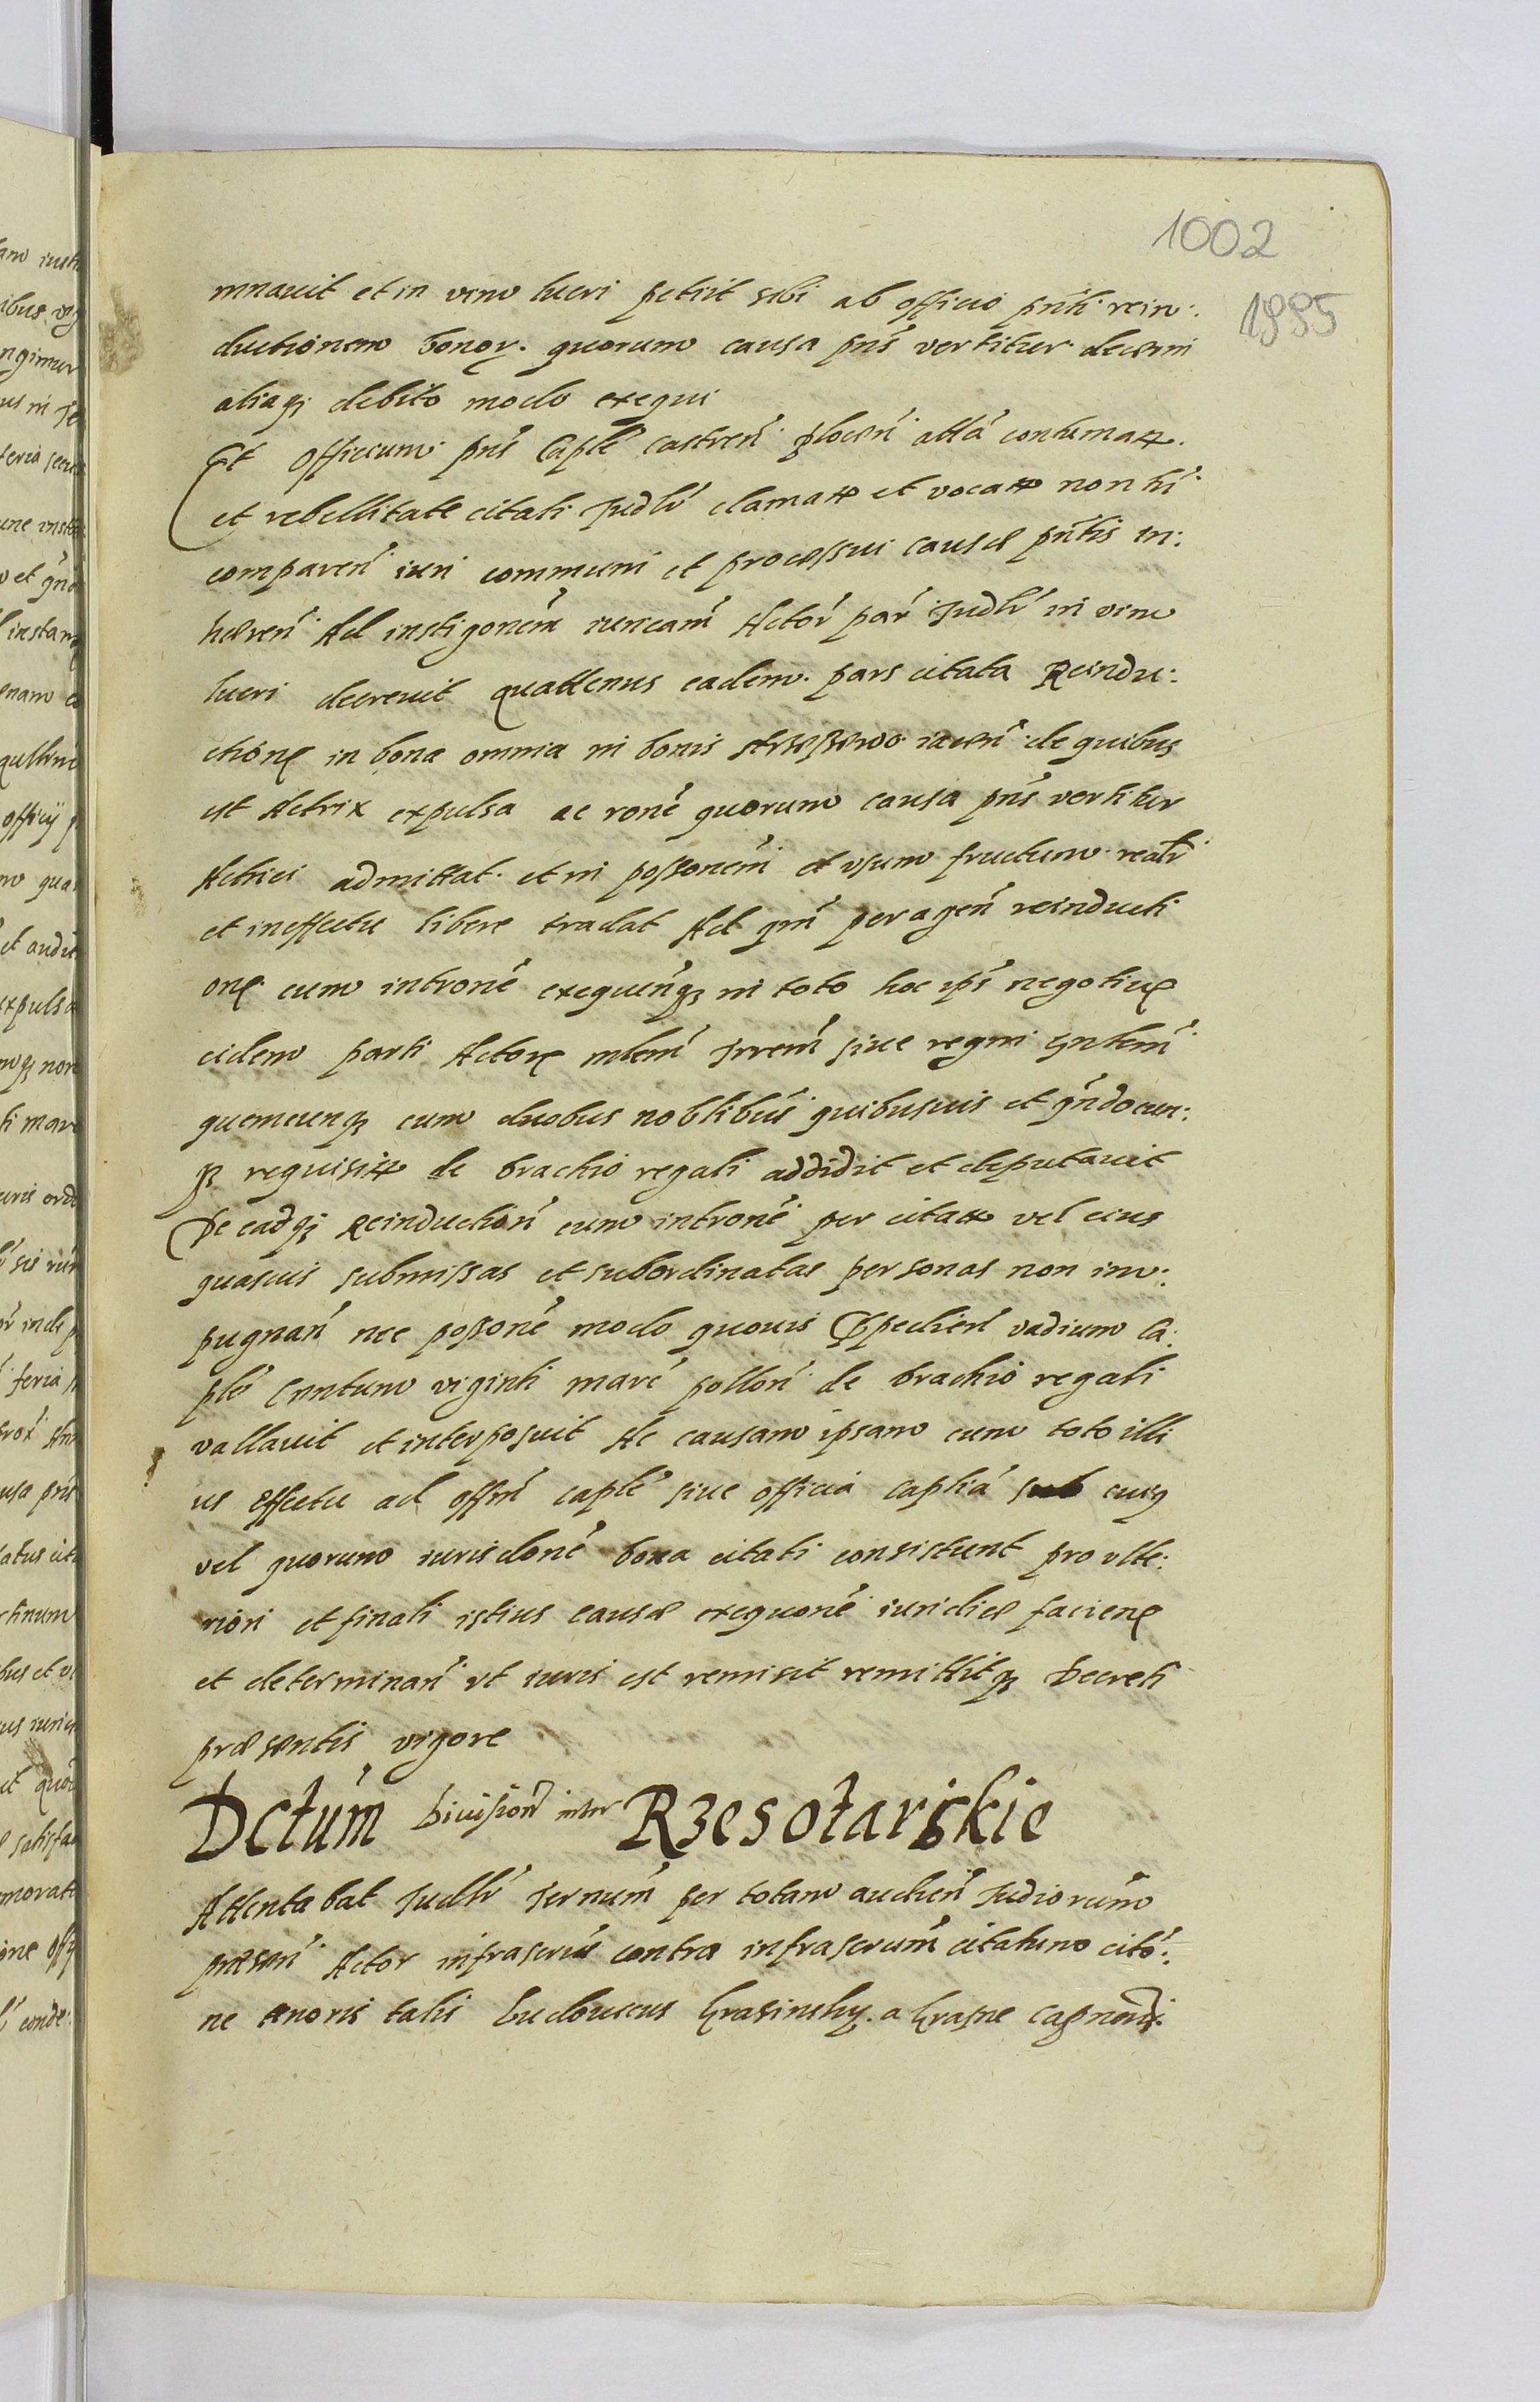 1002
1995
mnauit et in vim lucri petiit sibi ab officio pnti rein:
ductionem bonor. quorum causa pns vertitur decerni
aliaq; debito modo exequi
Et Officium pns Caple castren plocen attā contuma
et rebellitate citati Judlr clama et voca non tn
comparen iuri communi et processui causæ pntis in:
hæren Ad instigonem iuricam Actor par Judlr in vim
lucri decreuit quattenus eadem pars citata Reindu:
ctione in bona omnia in bonis iacen de quibus
est Actrix expulsa ac rone quorum causa pns vertitur
Actrici admittat et in possonem et vsum fructum realr
et in effectu libere tradat Ad qm peragen reinducti
one cum introne exequenq; in toto hoc ips negotiu
eidem parti Actore mlem Trrem siue regni Gnlem
quemcunq; cum duobus noblibus quibusuis et qndocun:
q; requisi de brachio regali addidit et deputauit
De eadq; Reinduction cum introne per cita vel eius
quasuis submissas et subordinatas personas non im:
pugnan nec possone modo quouis Impedien vadium Ca:
ple Centum viginti marc pollon de brachio regali
vallauit et interposuit Ac causam ipsam cum toto illi
us effectu ad offm caple siue officia caplia sub cuius
vel quorum iurisdone bona citati consistunt pro vlte:
riori et finali istius causæ exequone iuridice faciene
et determinan vt iuris est remisit remittitq; Decreti
præsentis vigore
Dctum Diuision inter Rzesotarskie
Attentabat Judlr Termum per totam audien Judiorum
præsen Actor infrascrus contra infrascrum citatum cito:
ne tenoris talis Ludouicus Krasinsky a Krasne